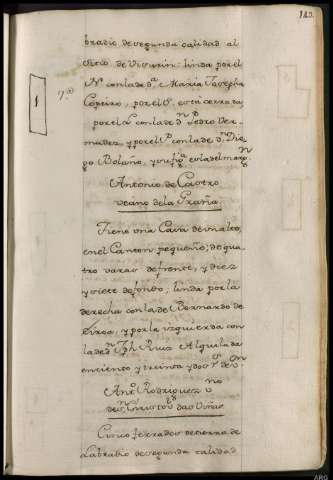 143.
bradio de segunda calidad al
sitio de Viturin: linda por el
Nᵉ con la de Dª Maria Josepha
7.ª
1
Copeiro, por el Sʳ està cerrada
por el Lᵉ con la de Dⁿ Pedro Ber-
mudez, y por el Pᵉ con la de Dⁿ Die-
go Bolaño, y su figª es la del margⁿ
Antonio de Castro
vecino de la Graña
Tiene una Casa de un alto,
en el Canton pequeño; de qua
tro varas de frente, y diez
y siete de fondo, linda por la
derecha con la de Bernardo de
y por la izquierda con
la de Dⁿ Jph Ruis Alquilada
en ciento y treinta y dos rˢ de vⁿ
Antº Rodriguez vnº
de Sⁿ Christovl das Viñas
Cinco ferrados de tierra de
Labradio de segunda calidad
ARG